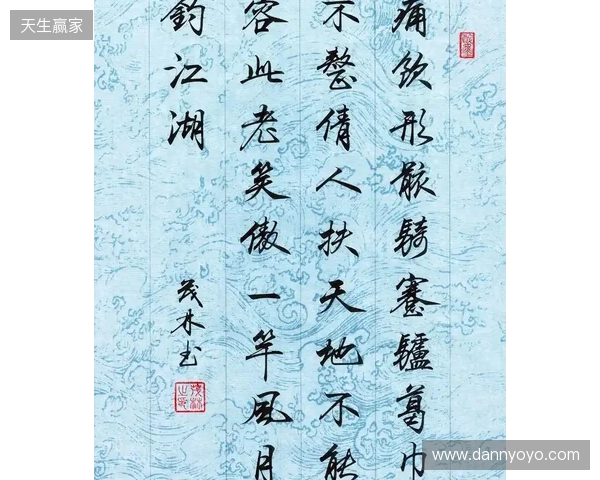 天生赢家
痛飲形骸騎蹇驢葛巾
不整倩人扶天地不能
容此老笑傲一竿風月
釣江湖
茂林书
www.dannyoyo.com